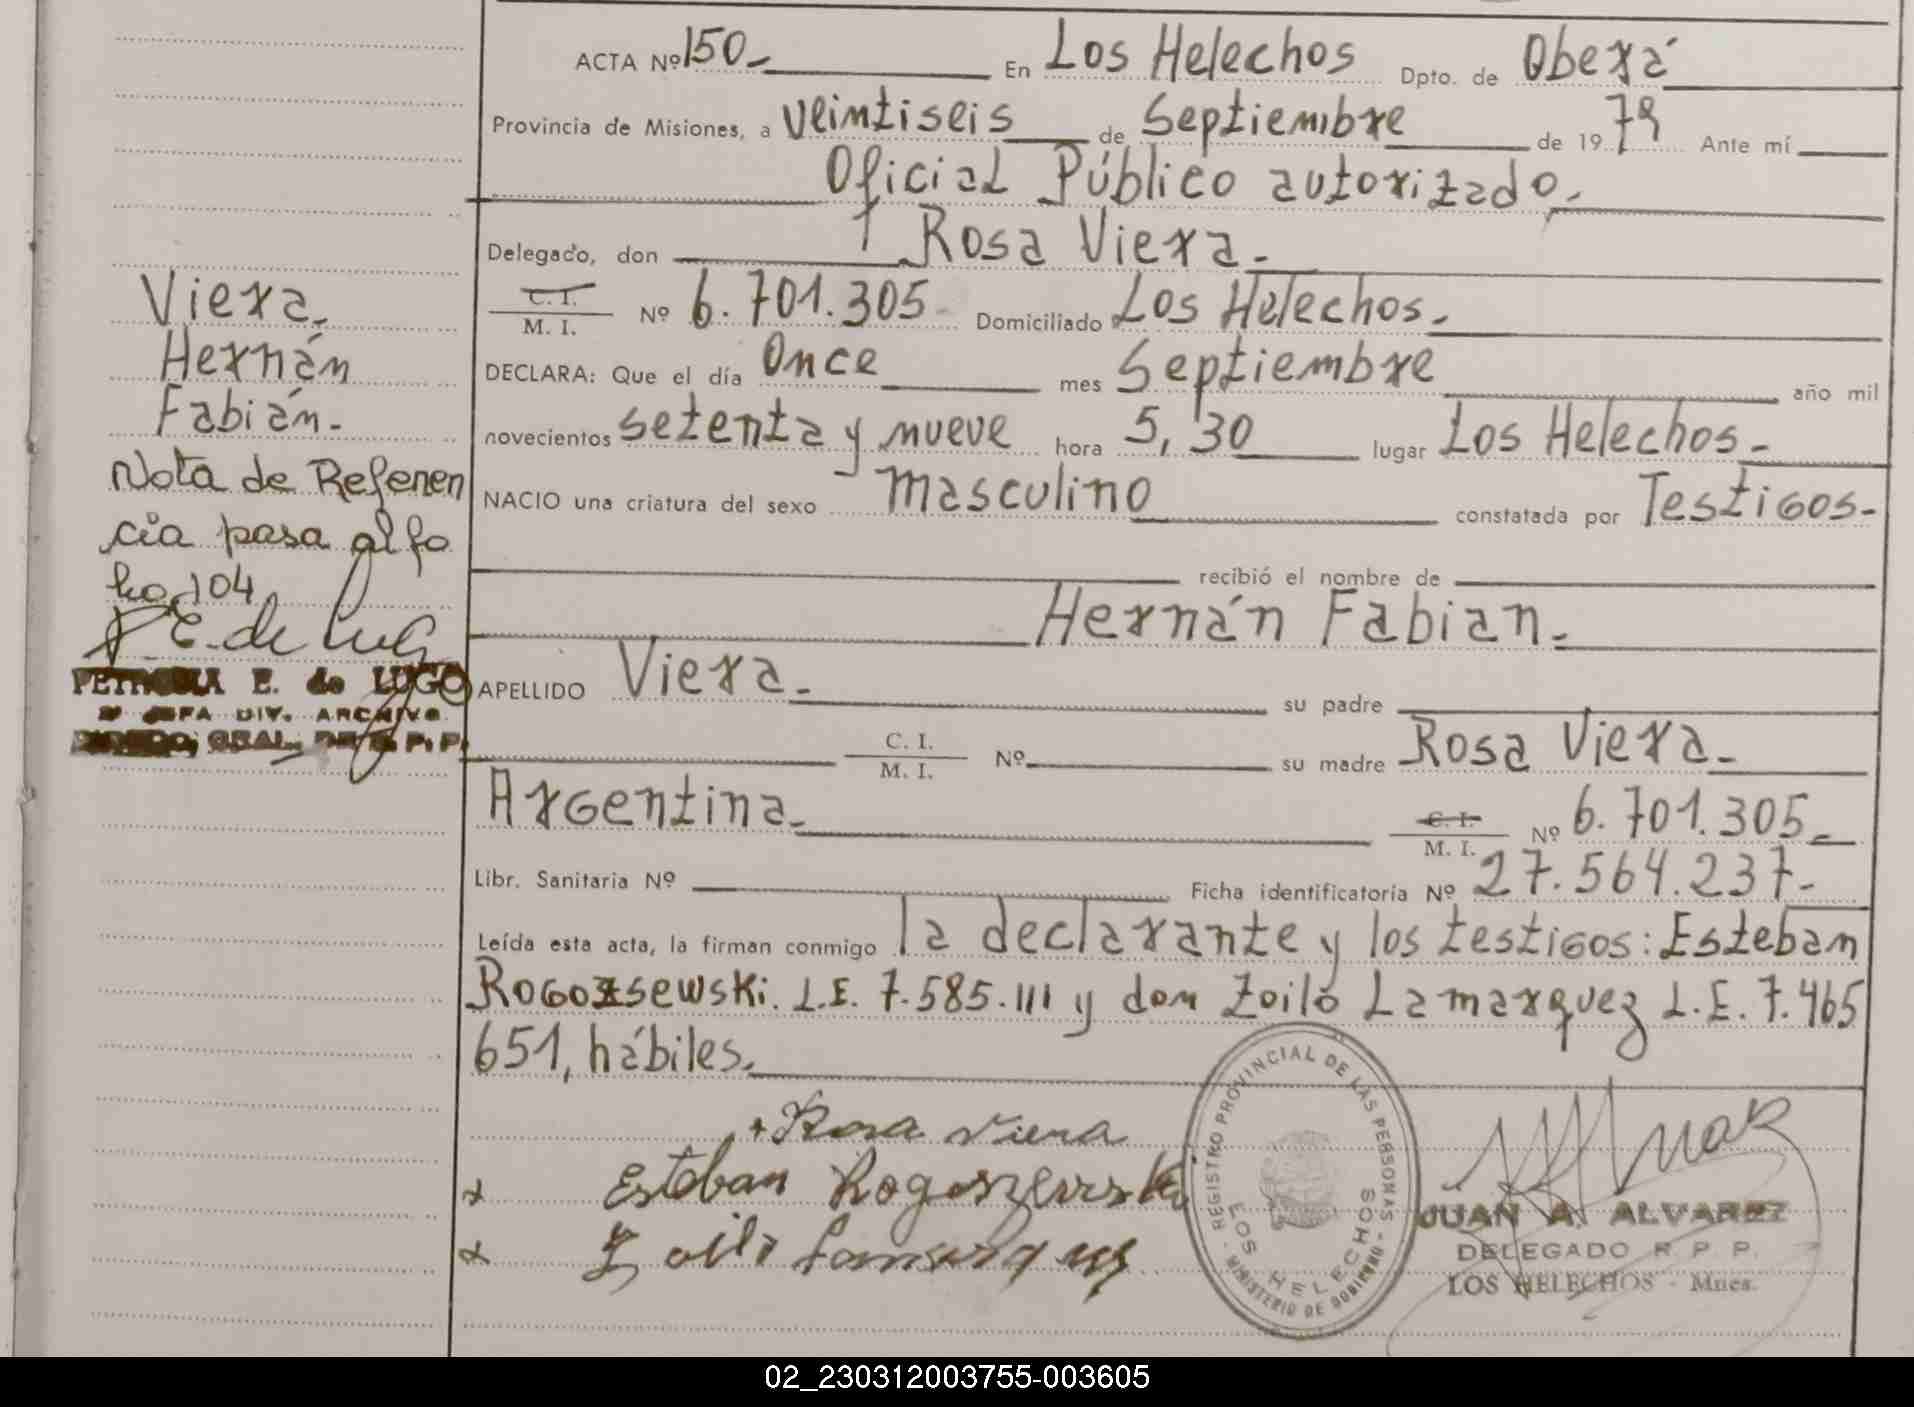 ACTA Nº 150.- En Los Helechos Dpto. de Oberá
Provincia de Misiones, a veintiseis de Septiembre de 1979 Ante mí
Oficial Público autorizado.
Delegado, don Rosa Viera.-
C. I.
M. I. Nº 6.701.305 Domiciliado Los Helechos.-
DECLARA: Que el día Once mes Septiembre año mil
novecientos setenta y nueve hora 5,30 lugar Los Helechos.-
NACIO una criatura del sexo Masculino constatada por Testigos.-
recibió el nombre de
Hernán Fabian.-
APELLIDO Viera.- su padre
C. I.
M. I. Nº su madre Rosa Viera.-
Argentina.- C. I.
M. I. Nº 6.701.305.-
Libr. Sanitaria Nº Ficha identificatoria Nº 27.564.237.-
Leída esta acta, la firman conmigo la declarante y los testigos: Esteban
Rogozsewski. L.E. 7.585.111 y don Zoilo Lamarquez L.E. 7.465
651, hábiles.
Viera.
Hernán
Fabián.-
Nota de Referen
cia pasa al fo
lio 104
P. E. de Lugo
PETRONA E. de LUGO
JEFA DIV. ARCHIVO
GRAL. DE R. P. P.
+ Rosa Viera
x Esteban Rogoszewski
x Zoilo Lamarquez
REGISTRO PROVINCIAL DE LAS PERSONAS
MINISTERIO DE GOBIERNO
LOS HELECHOS
JUAN A. ALVAREZ
DELEGADO R. P. P.
LOS HELECHOS - Mnes.
02_230312003755-003605